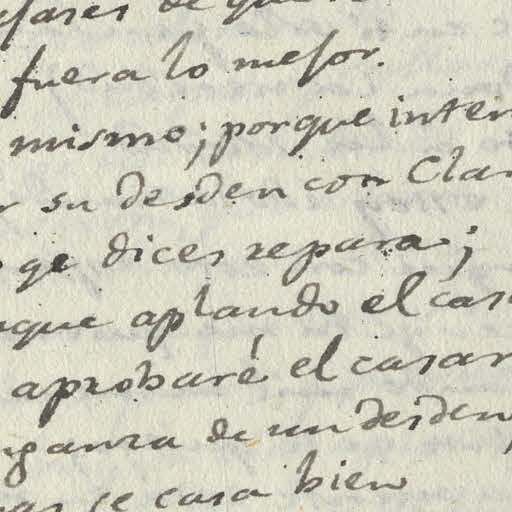 de que
fuera lo mejor.
mismo; porque inten
su desden con Cla
qe dices repara;
que aplaudo el cas
aprobaré el casar
nganza de un desden,
se casa bien